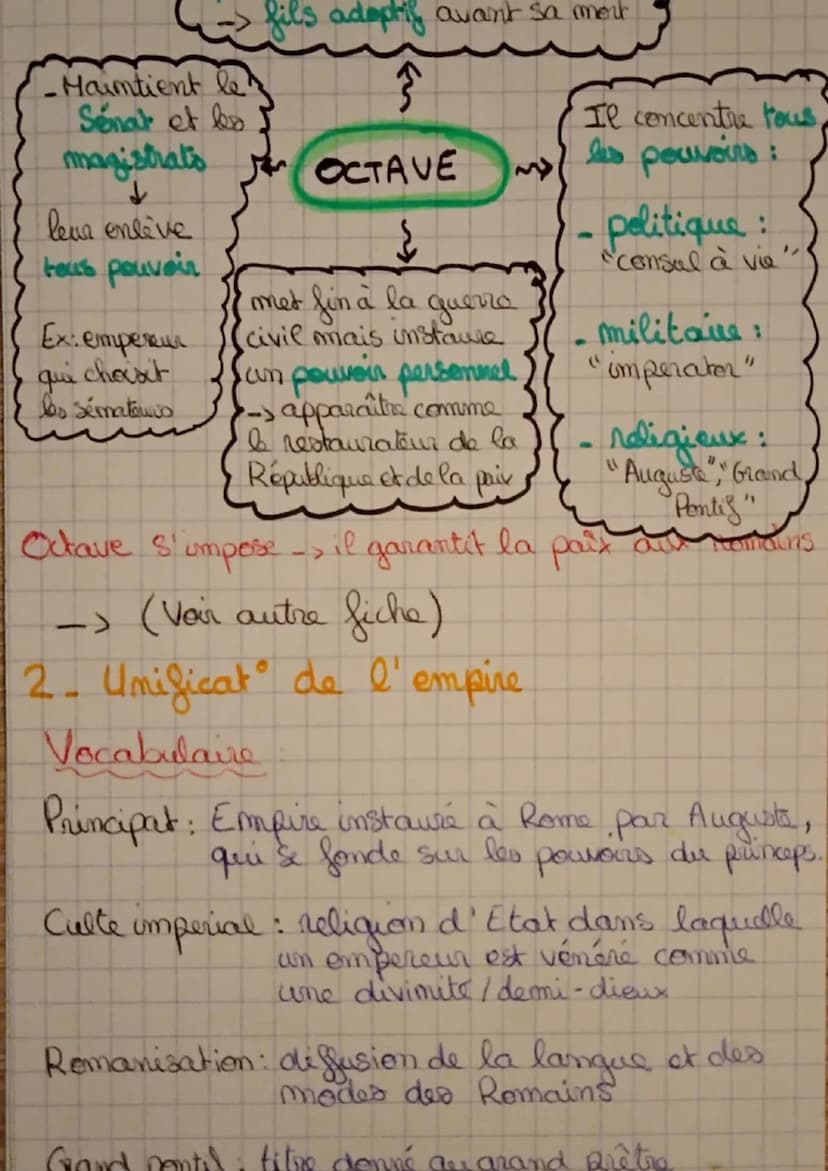 -> fils adoptif avant sa mort
- Maintient le
Sénat et les
magistrats
↓
leur enlève
tous pouvoir
Ex: empereur
qui choisit
les sénateurs
OCTAVE
met fin à la guerre
civil mais instaure
un pouvoir personnel
-> apparaître comme
le restaurateur de la
République et de la paix
Il concentre tous
les pouvoirs :
- politique :
"consul à vie"
- militaire :
"imperator"
- religieux :
"Auguste", "Grand
Pontif"
Octave s'impose -> il garantit la paix aux Romains
-> (Voir autre fiche)
2 - Unificat° de l'empire
Vocabulaire
Principat : Empire instauré à Rome par Auguste,
qui se fonde sur les pouvoirs du princeps.
Culte imperial : religion d'Etat dans laquelle
un empereur est vénéré comme
une divinité / demi-dieux
Romanisation : diffusion de la langue et des
modes des Romains
Grand pontif : titre donné au grand prêtre